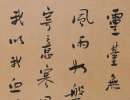 靈臺無
風雨如磐
寄意寒
我以我血